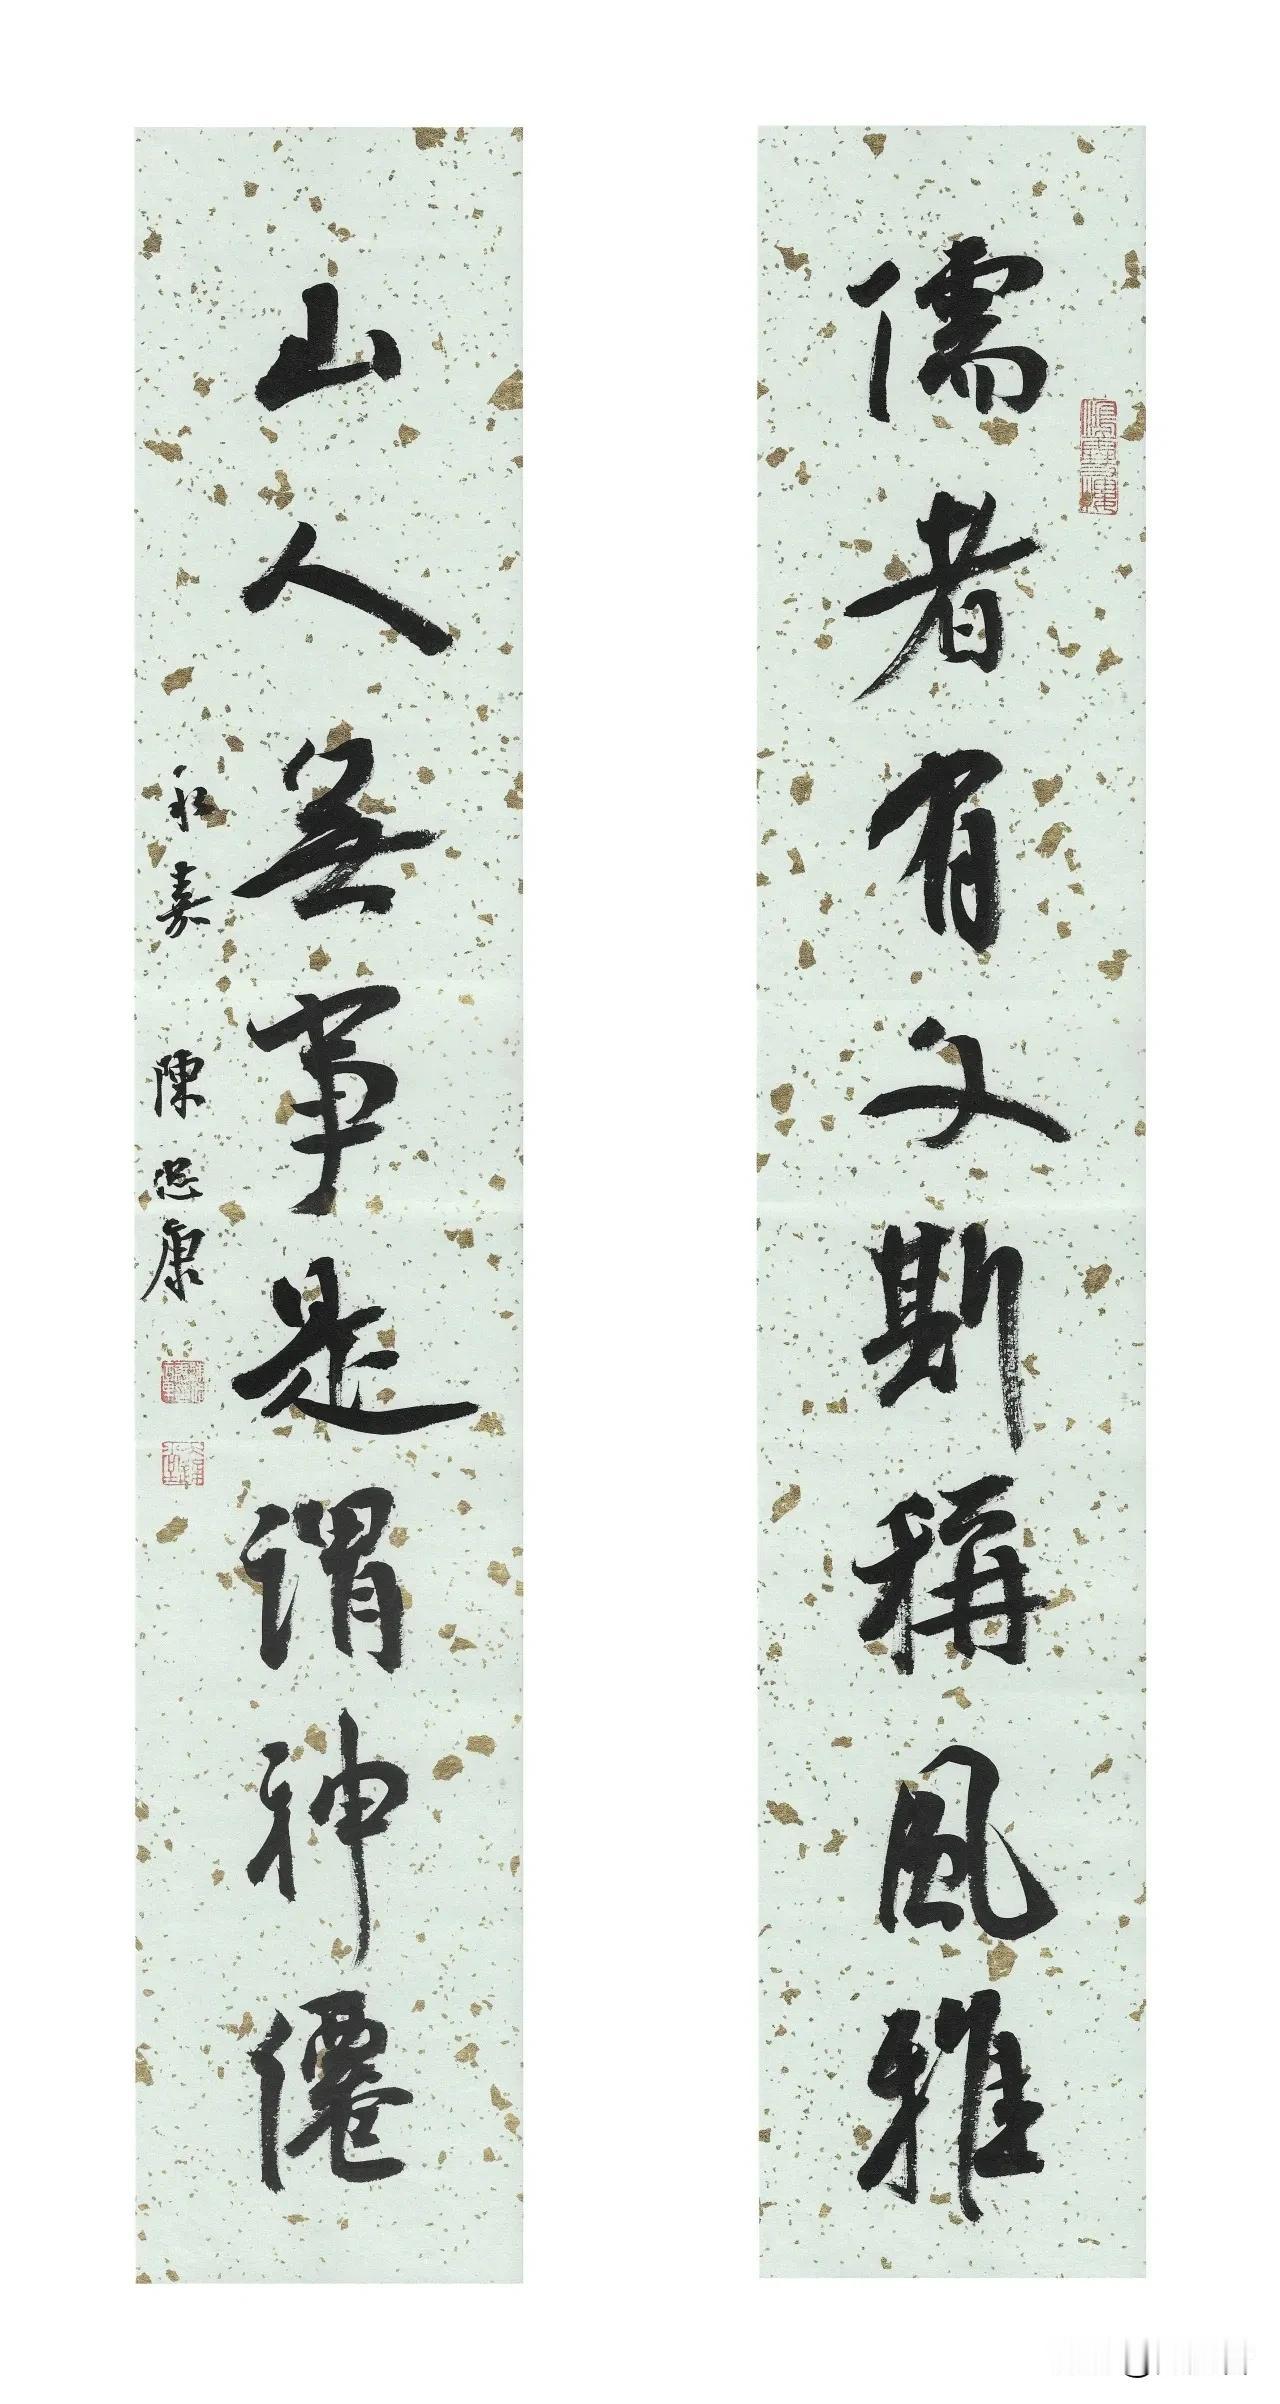 儒者有文斯稱風雅
山人無事是謂神僊
永嘉 陳忠康